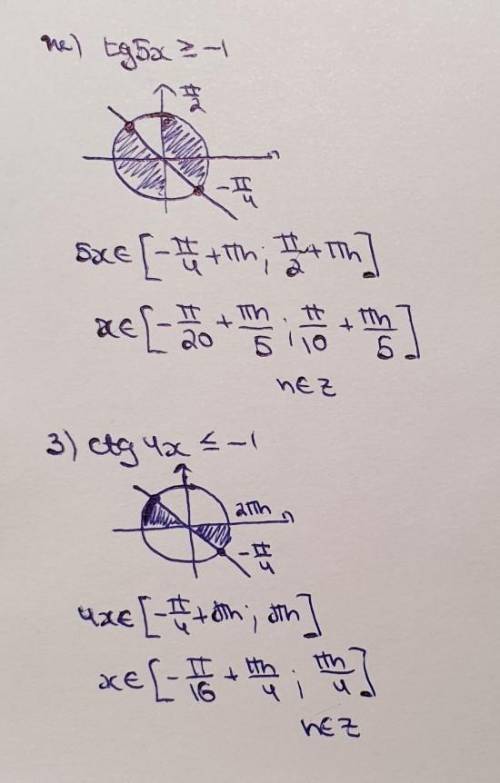 ж) tg5x ≥ -1
π/2
-π/4
5x ∈ [-π/4 + πn; π/2 + πn]
x ∈ [-π/20 + πn/5; π/10 + πn/5]
n ∈ z
3) ctg 4x ≤ -1
2πn
-π/4
4x ∈ [-π/4 + πn; πn]
x ∈ [-π/16 + πn/4; πn/4]
n ∈ z